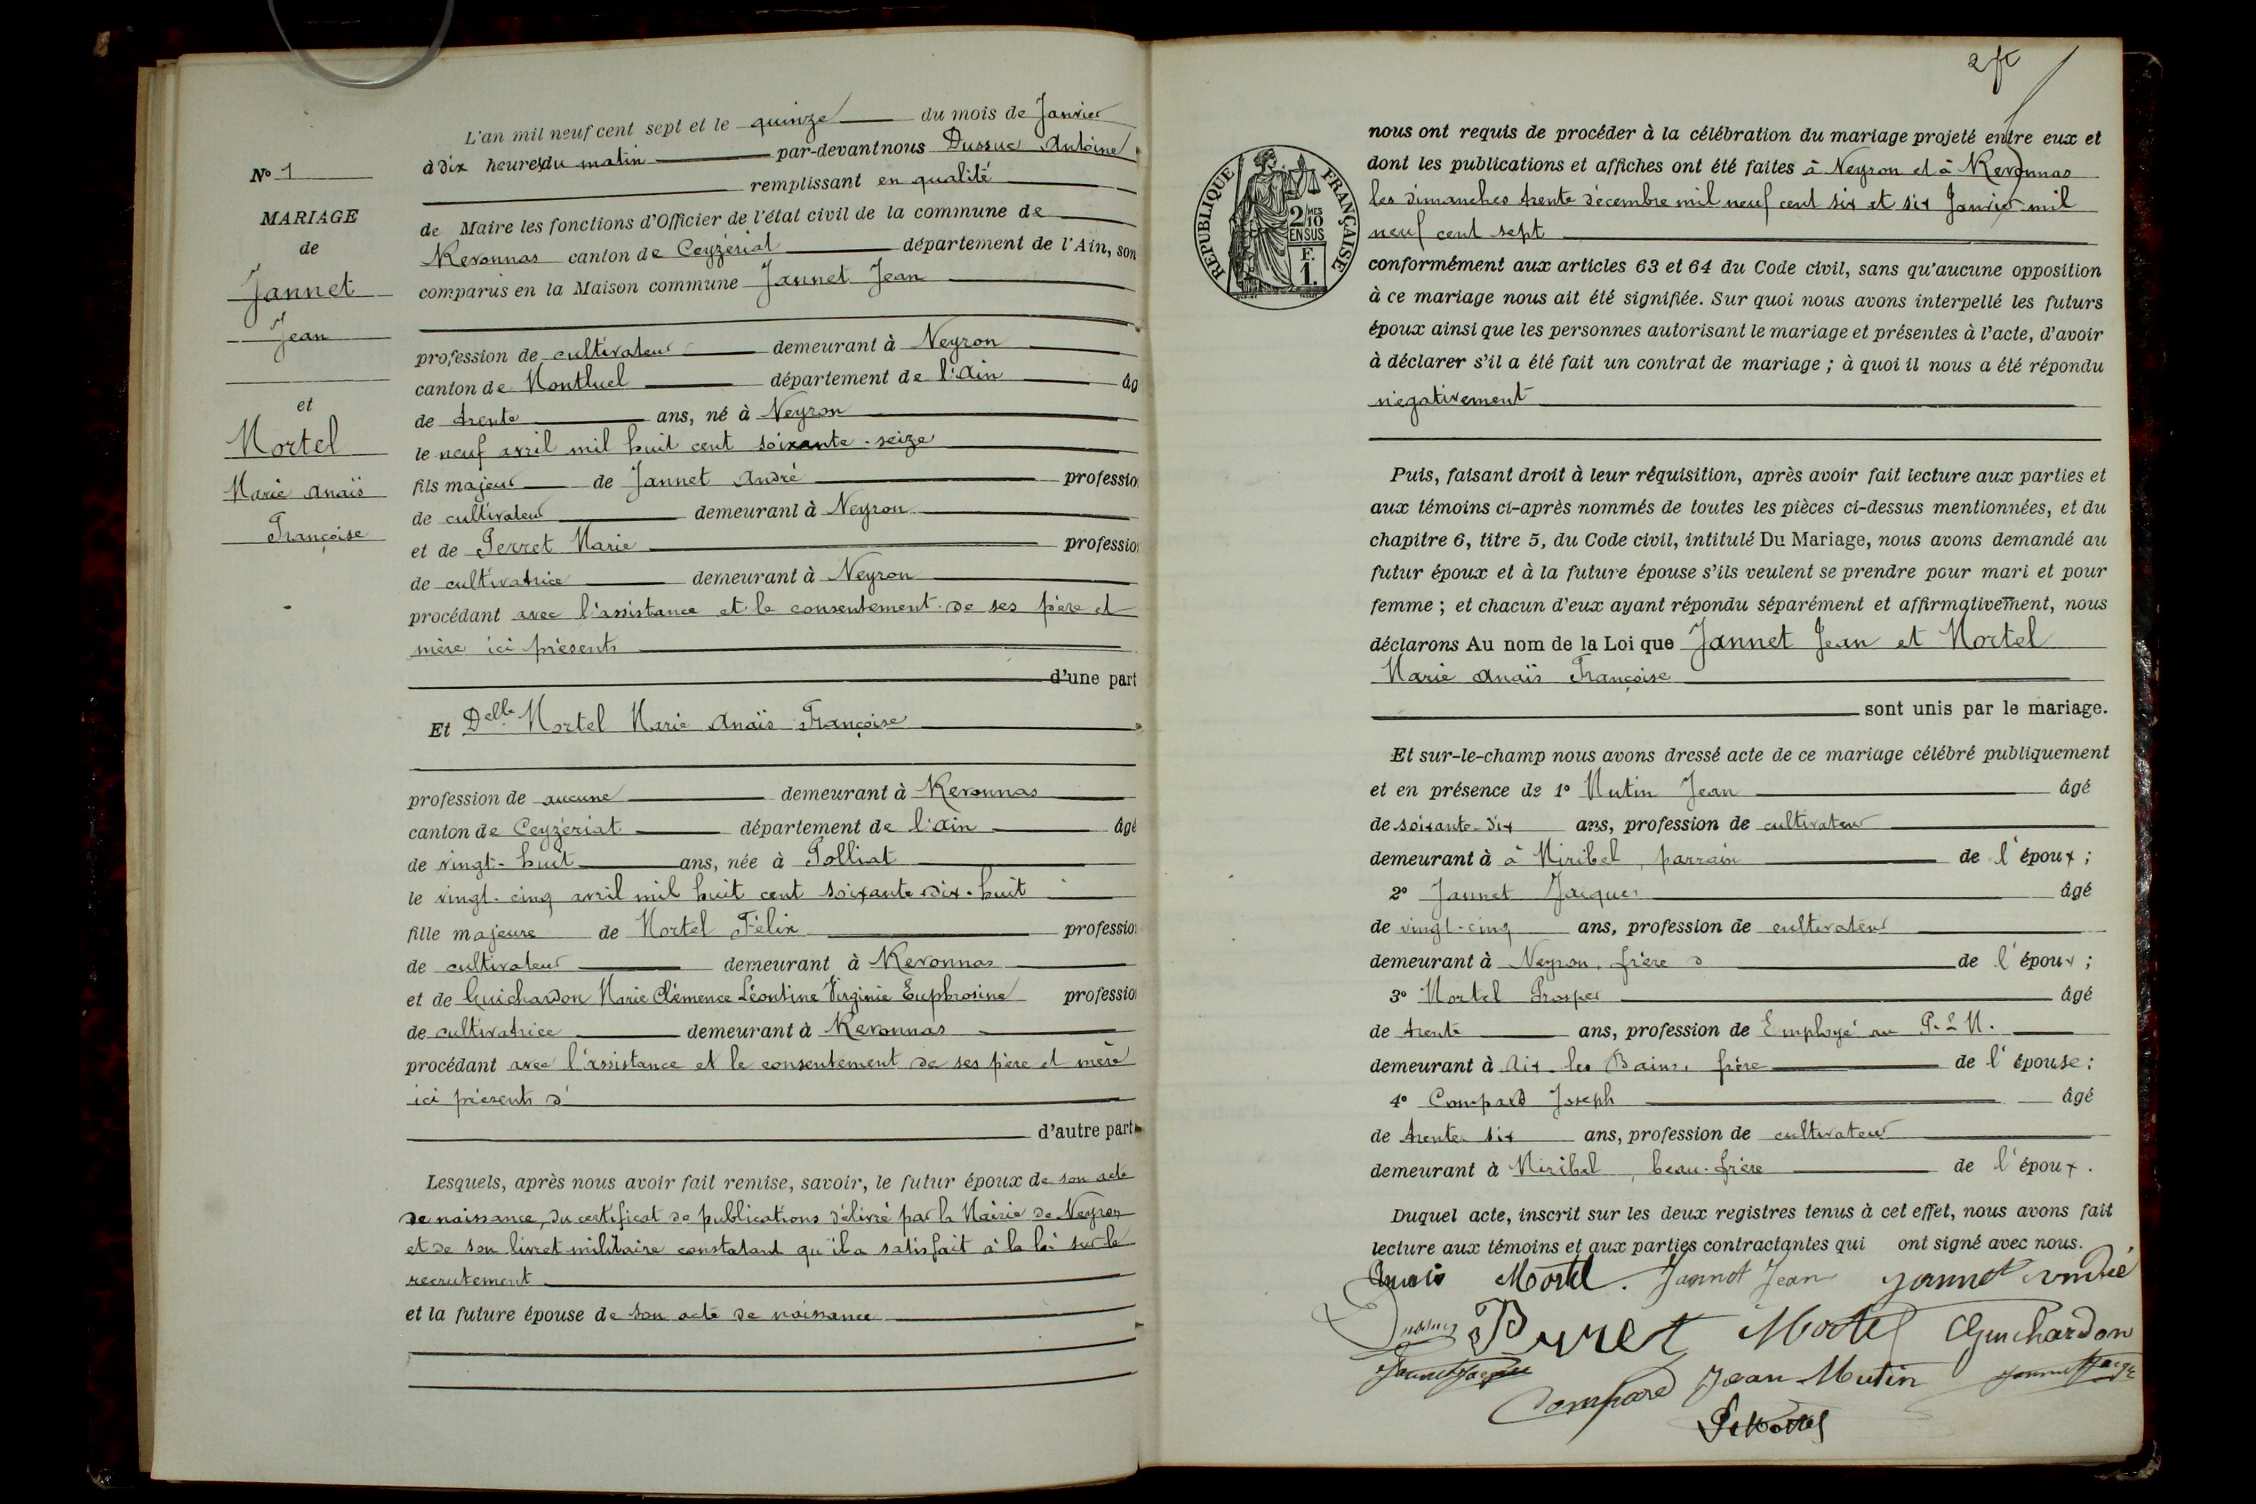 L'an mil neuf cent sept et le quinze du mois de Janvier
à dix heures du matin par-devant nous Dussuc Antoine
remplissant en qualité
de Maire les fonctions d'Officier de l'état civil de la commune de
Revonnas canton de Ceyzériat département de l'Ain, son
comparus en la Maison commune Jannet Jean
profession de cultivateur demeurant à Neyron
canton de Montluel département de l'Ain âg
de trente ans, né à Neyron
le neuf avril mil huit cent soixante-seize
fils majeur de Jannet André professio
de cultivateur demeurant à Neyron
et de Perret Marie profession
de cultivatrice demeurant à Neyron
procédant avec l'assistance et le consentement de ses père et
mère ici présents
d'une part
Et Delle Mortel Marie Anaïs Françoise
profession de aucune demeurant à Revonnas
canton de Ceyzériat département de l'Ain âgé
de vingt-huit ans, née à Polliat
le vingt-cinq avril mil huit cent soixante dix-huit
fille majeure de Mortel Félix profession
de cultivateur demeurant à Revonnas
et de Guichardon Marie Clémence Léontine Virginie Euphrosine profession
de cultivatrice demeurant à Revonnas
procédant avec l'assistance et le consentement de ses père et mère
ici présents
d'autre part
Lesquels, après nous avoir fait remise, savoir, le futur époux de son acte
de naissance, du certificat de publications délivré par la Mairie de Neyron
et de son livret militaire constatant qu'il a satisfait à la loi sur le
recrutement
et la future épouse de son acte de naissance
No 1
MARIAGE
de
Jannet
Jean
et
Mortel
Marie Anaïs
Françoise
nous ont requis de procéder à la célébration du mariage projeté entre eux et
dont les publications et affiches ont été faites à Neyron et à Revonnas
les dimanches trente décembre mil neuf cent six et six Janvier mil
neuf cent sept
conformément aux articles 63 et 64 du Code civil, sans qu'aucune opposition
à ce mariage nous ait été signifiée. Sur quoi nous avons interpellé les futurs
époux ainsi que les personnes autorisant le mariage et présentes à l'acte, d'avoir
à déclarer s'il a été fait un contrat de mariage ; à quoi il nous a été répondu
négativement
Puis, faisant droit à leur réquisition, après avoir fait lecture aux parties et
aux témoins ci-après nommés de toutes les pièces ci-dessus mentionnées, et du
chapitre 6, titre 5, du Code civil, intitulé Du Mariage, nous avons demandé au
futur époux et à la future épouse s'ils veulent se prendre pour mari et pour
femme ; et chacun d'eux ayant répondu séparément et affirmativement, nous
déclarons Au nom de la Loi que Jannet Jean et Mortel
Marie Anaïs Françoise
sont unis par le mariage.
Et sur-le-champ nous avons dressé acte de ce mariage célébré publiquement
et en présence de 1° Mutin Jean âgé
de soixante-dix ans, profession de cultivateur
demeurant à à Miribel, parrain de l'époux ;
2° Jannet Jacques âgé
de vingt-cinq ans, profession de cultivateur
demeurant à Neyron, frère de l'époux ;
3° Mortel Prosper âgé
de trente ans, profession de Employé au P.L.M.
demeurant à Aix les Bains, frère de l'épouse ;
4° Compard Joseph âgé
de trente six ans, profession de cultivateur
demeurant à Miribel, beau-frère de l'époux.
Duquel acte, inscrit sur les deux registres tenus à cet effet, nous avons fait
lecture aux témoins et aux parties contractantes qui ont signé avec nous.
Anais Mortel. Jannet Jean Jannet André
Dussuc Mortel Guichardon
Jannet Jacques Compard Jean Mutin
RÉPUBLIQUE FRANÇAISE
2/10 MES
EN SUS
F.
1.